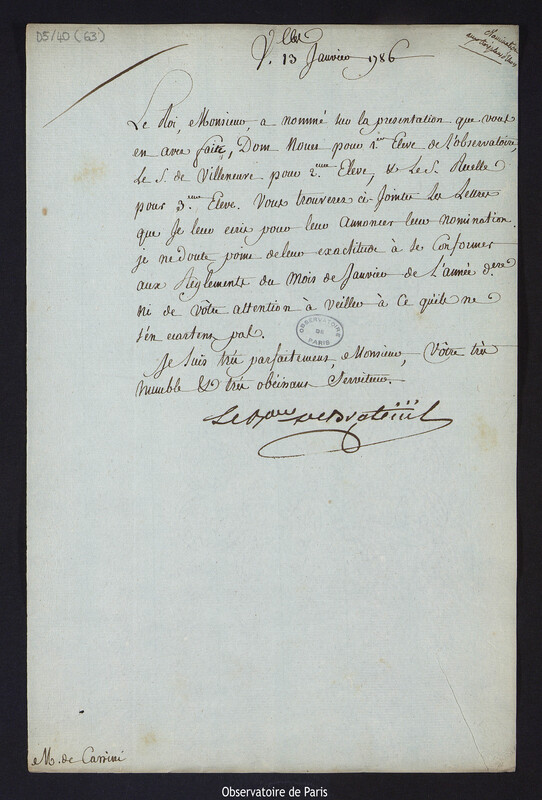 D5/40 (63)
V.lles 13 Janvier 1786
Nomination
Le Roi, Monsieur, a nommé sur la presentation que vous
en avez faite, Dom Nouet pour 1.er Eleve de l'observatoire,
Le S. de Villeneuve pour 2.eme Eleve, & Le S. Ruelle
pour 3.eme Eleve. Vous trouverez ci-jointes Les Lettres
que je leur ecris pour leur annoncer leur nomination.
je ne doute point de leur exactitude à se Conformer
aux Reglements du Mois de Janvier de L'année d.ere
ni de vôtre attention à veiller à Ce qu'ils ne
s'en ecartent pas.
OBSERVATOIRE
DE
PARIS
Je suis très parfaitement, Monsieur, Vôtre très
humble & très obéissant Serviteur.
Le B.on de Breteüil
M. de Cassini
Observatoire de Paris